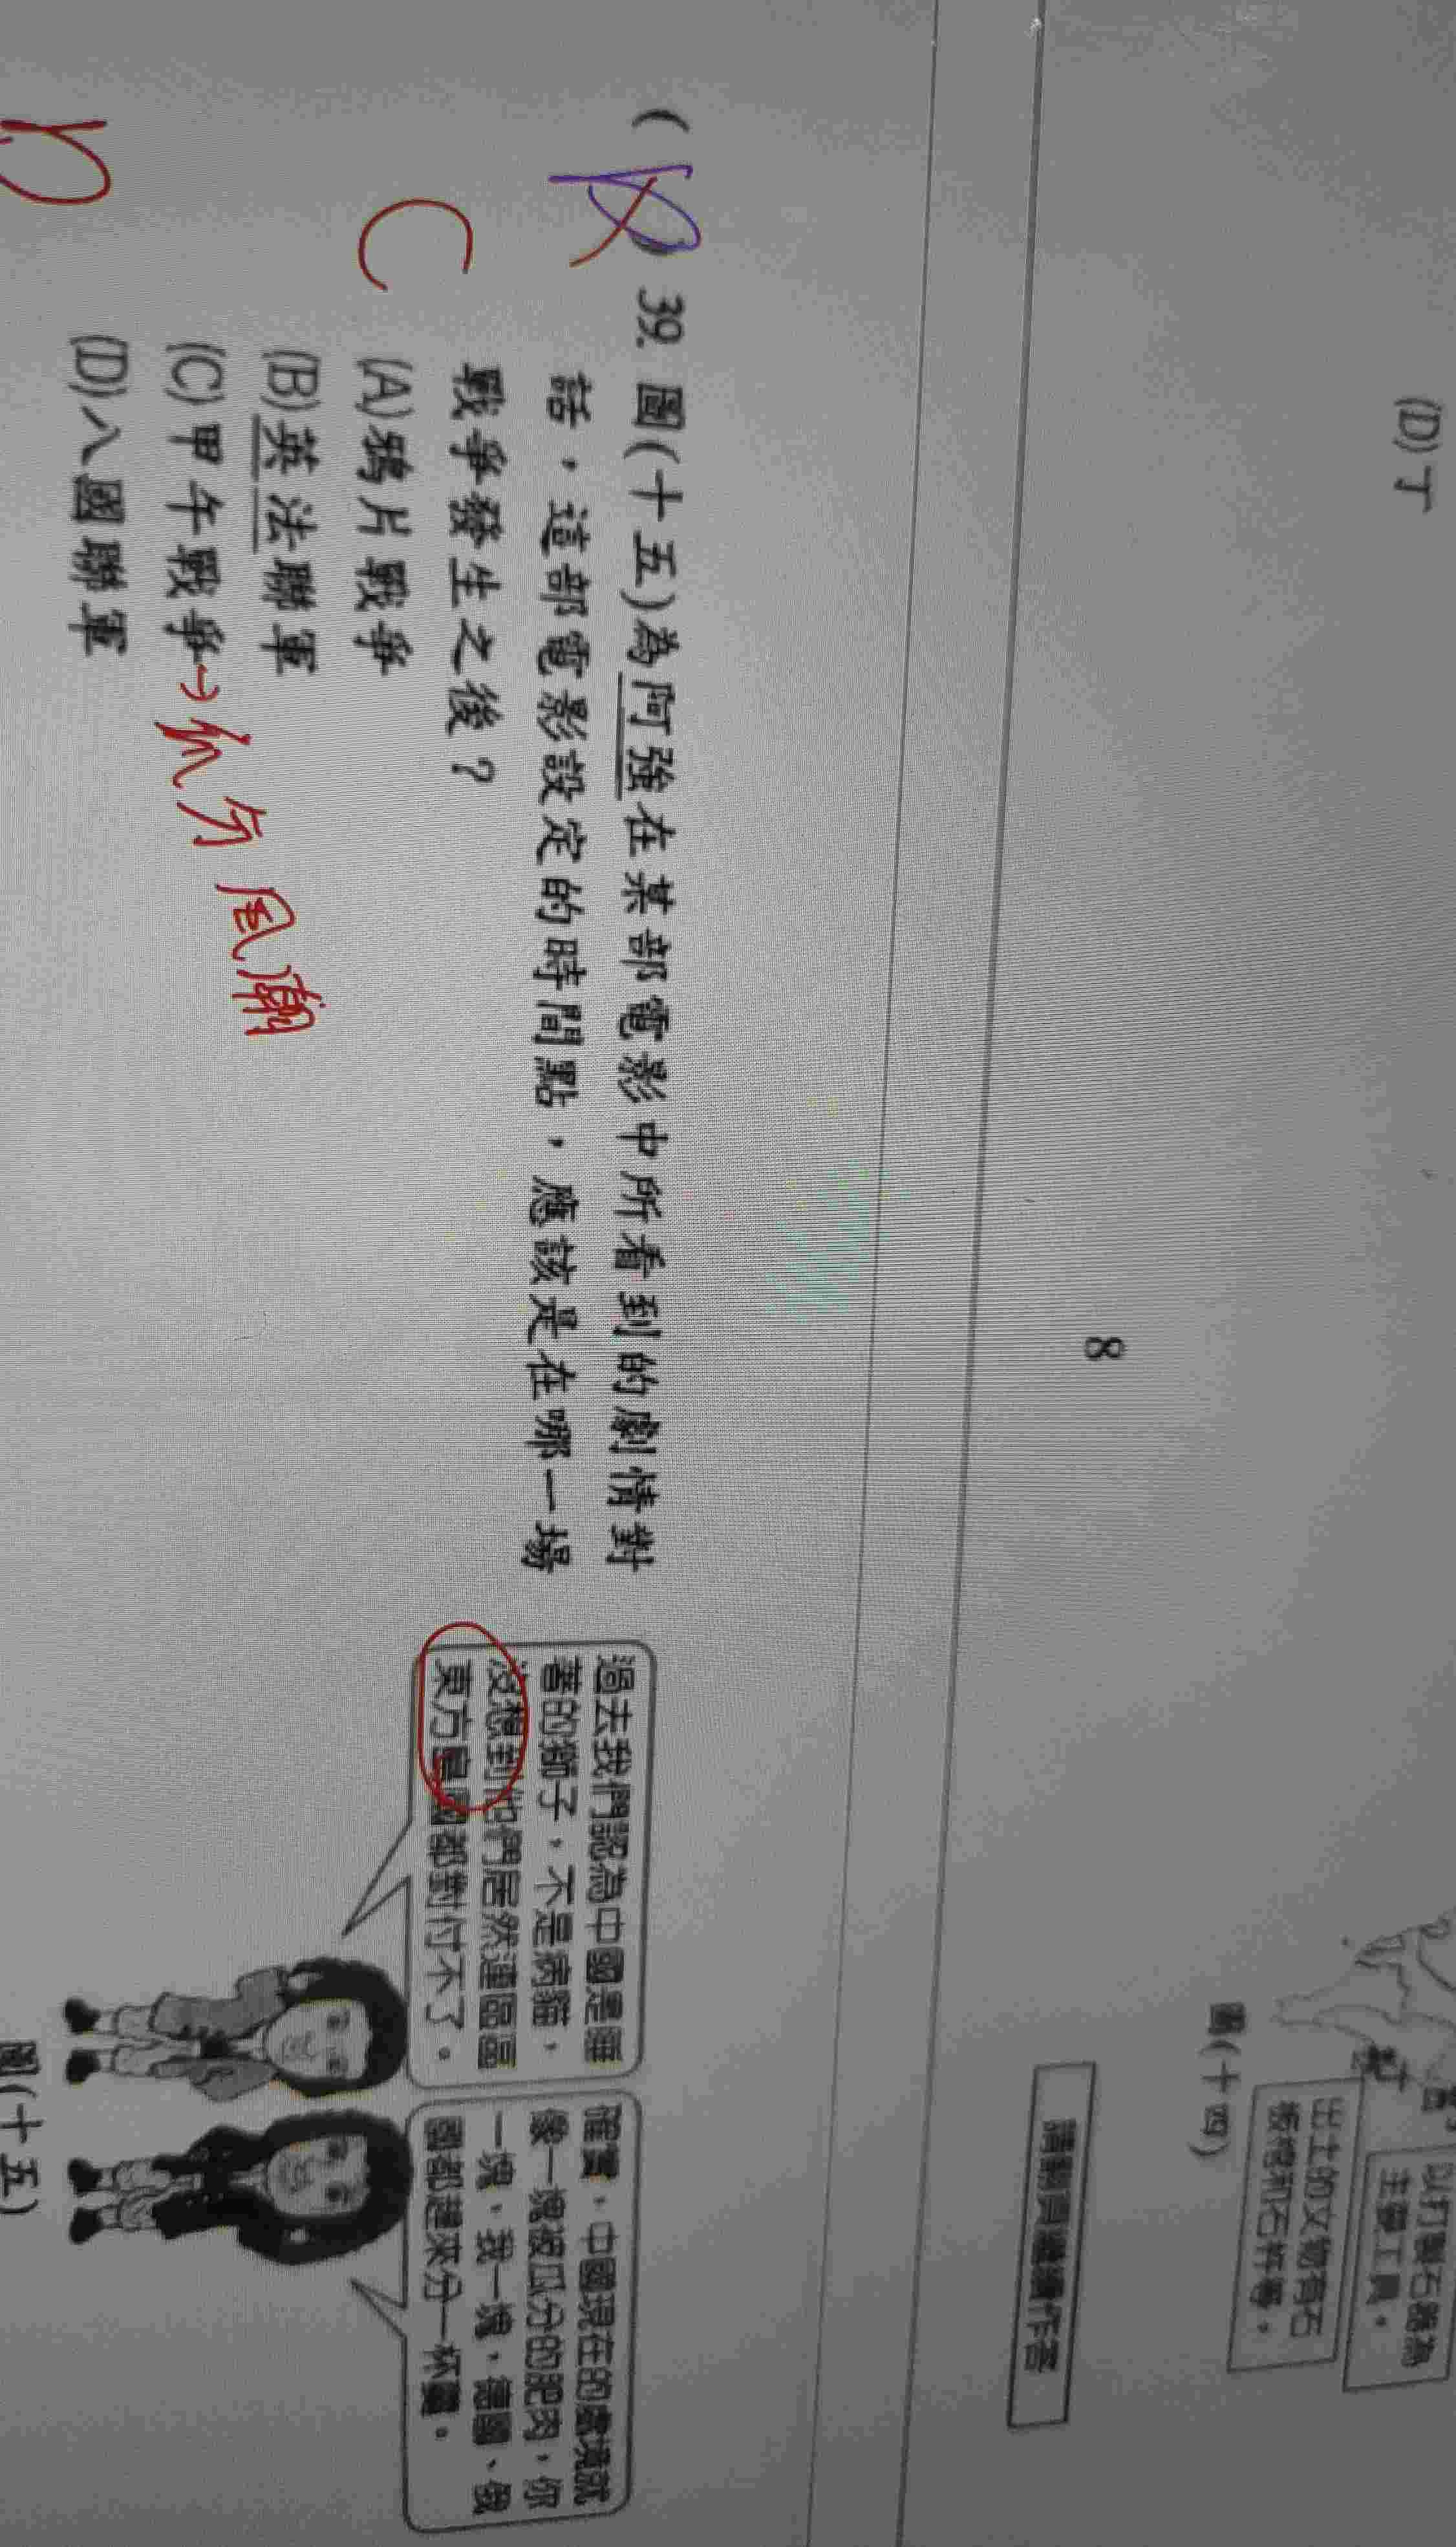 (D)丁
以打製石器為
主要工具。
出土的文物有石
板棺和石杵等。
圖(十四)
8
請翻頁繼續作答
( D ) 39. 圖(十五)為阿強在某部電影中所看到的劇情對
話,這部電影設定的時間點,應該是在哪一場
戰爭發生之後?
C
(A)鴉片戰爭
(B)英法聯軍
(C)甲午戰爭→瓜分風潮
(D)八國聯軍
D
過去我們認為中國是睡
著的獅子,不是病貓,
沒想到他們居然連區區
東方島國都對付不了。
確實,中國現在的處境就
像一塊被瓜分的肥肉,你
一塊、我一塊,德國、俄
國都趕來分一杯羹。
圖(十五)